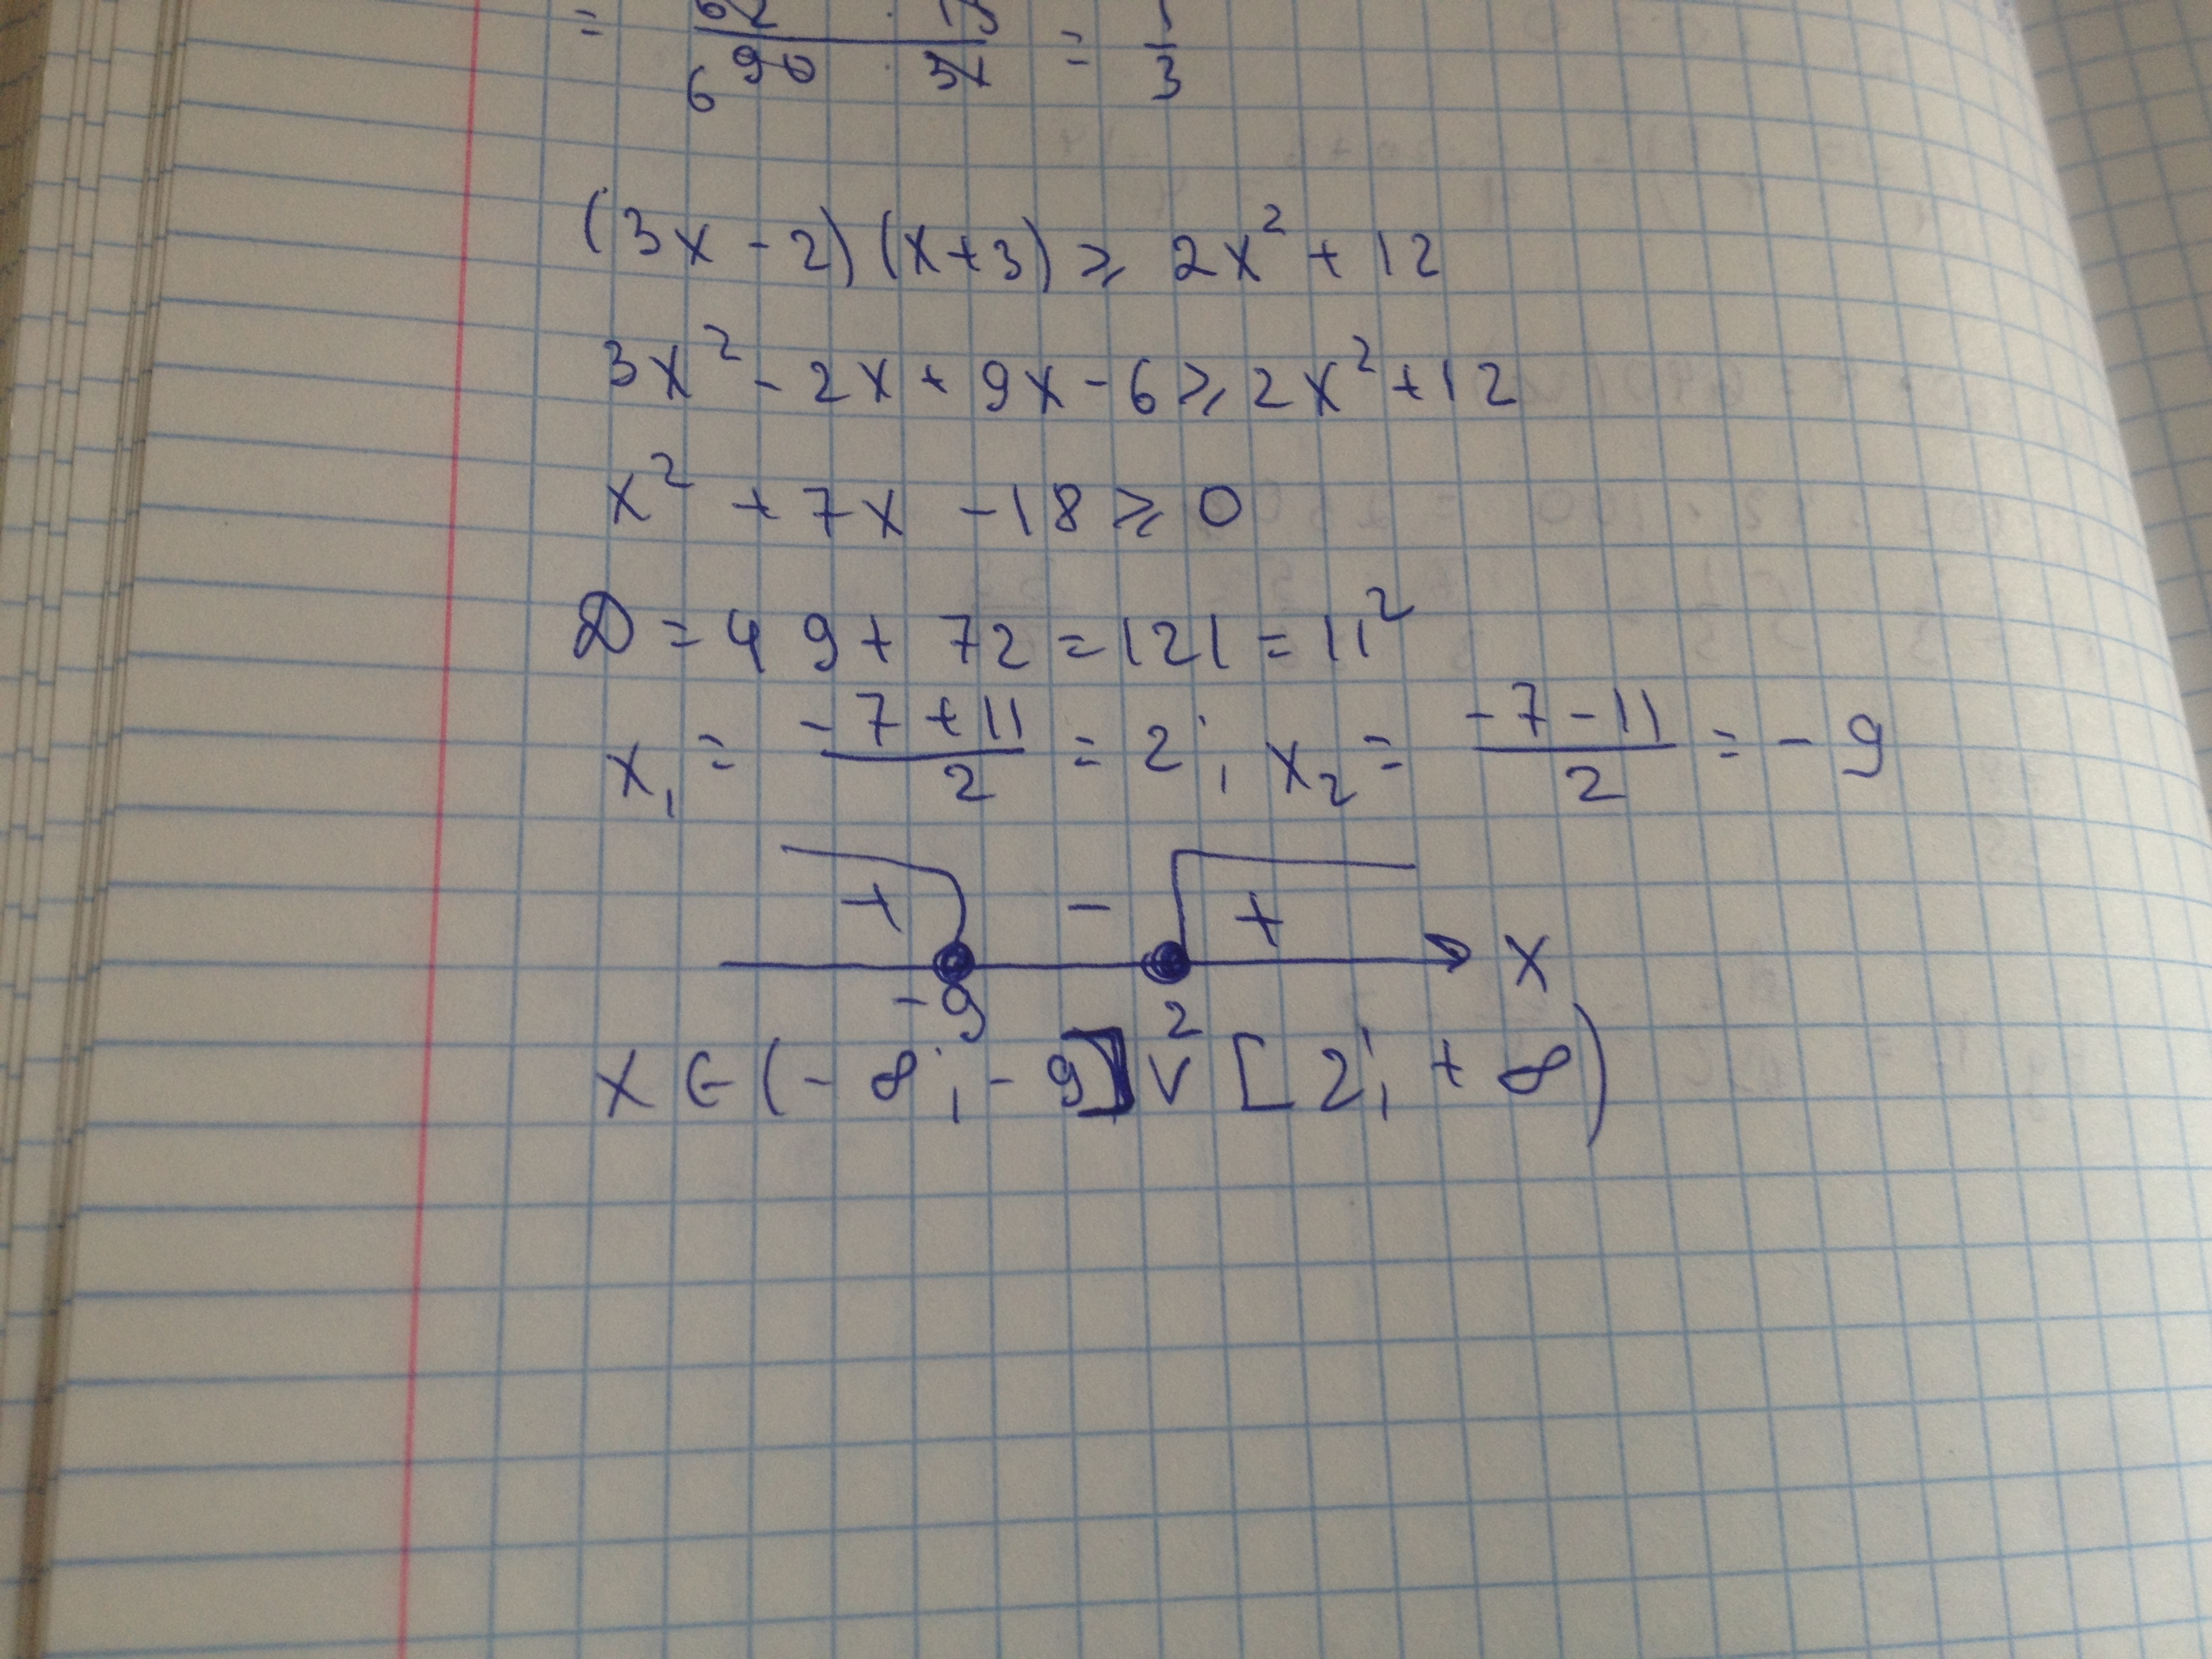 = / 6 90 · 31 = 1/3
(3x - 2)(x+3) ⩾ 2x² + 12
3x² - 2x + 9x - 6 ⩾ 2x² + 12
x² + 7x - 18 ⩾ 0
D = 49 + 72 = 121 = 11²
x₁ = (-7 + 11)/2 = 2; x₂ = (-7 - 11)/2 = - 9
+ - +
-9 2 x
x ∈ (-∞; -9] ∨ [2; +∞)